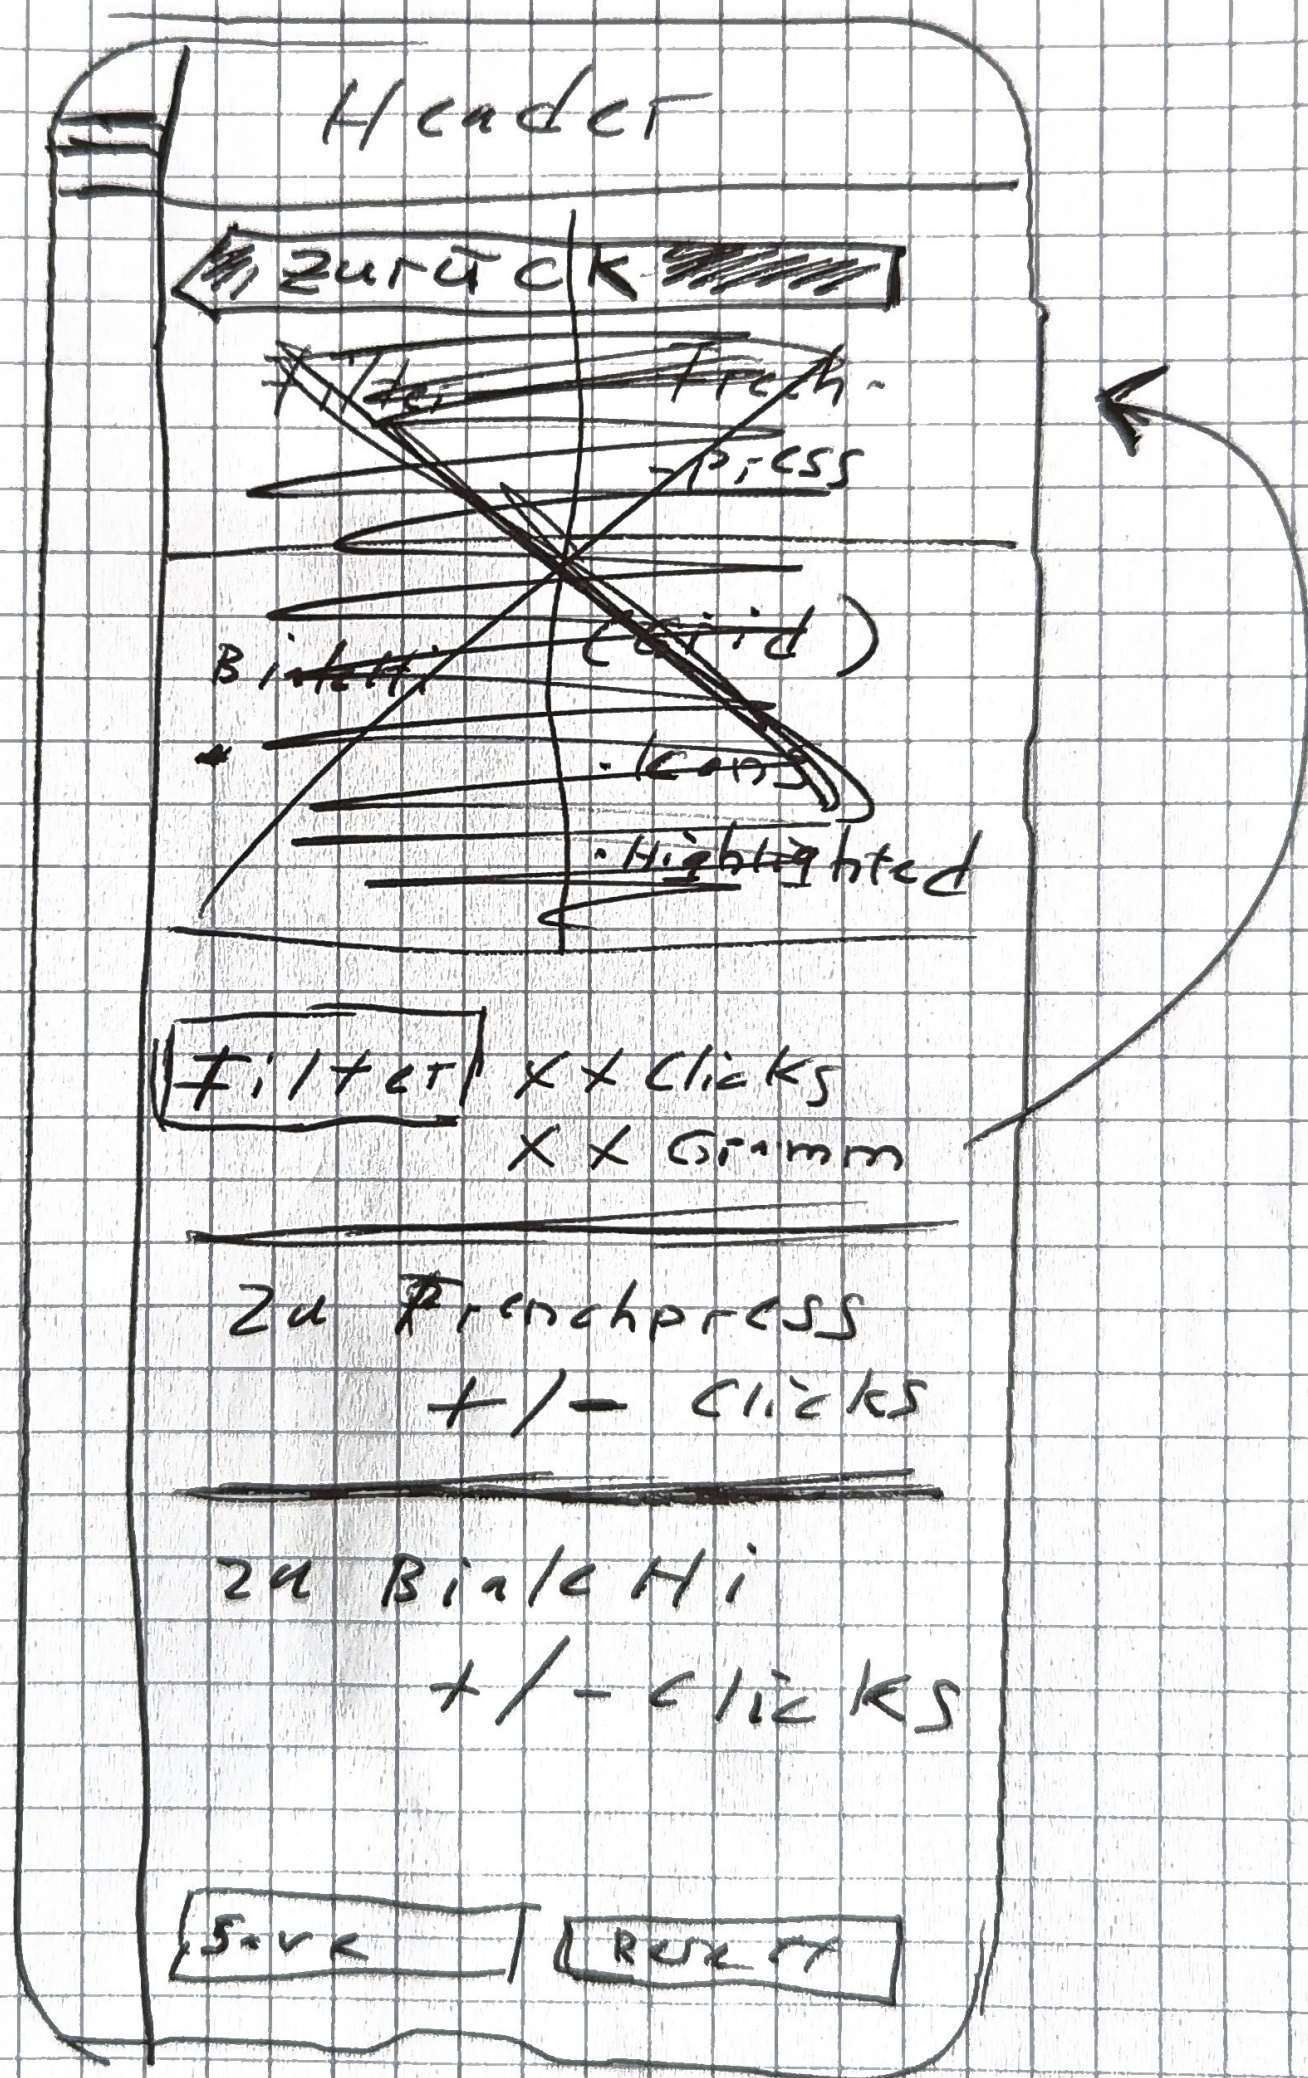 Header
Zurück
Filter French-
-press
(Grid)
Bialetti
. Icons
. Highlighted
Filter XX Clicks
XX Gramm
zu Frenchpress
+/- Clicks
zu Bialetti
+/- Clicks
Save Reset